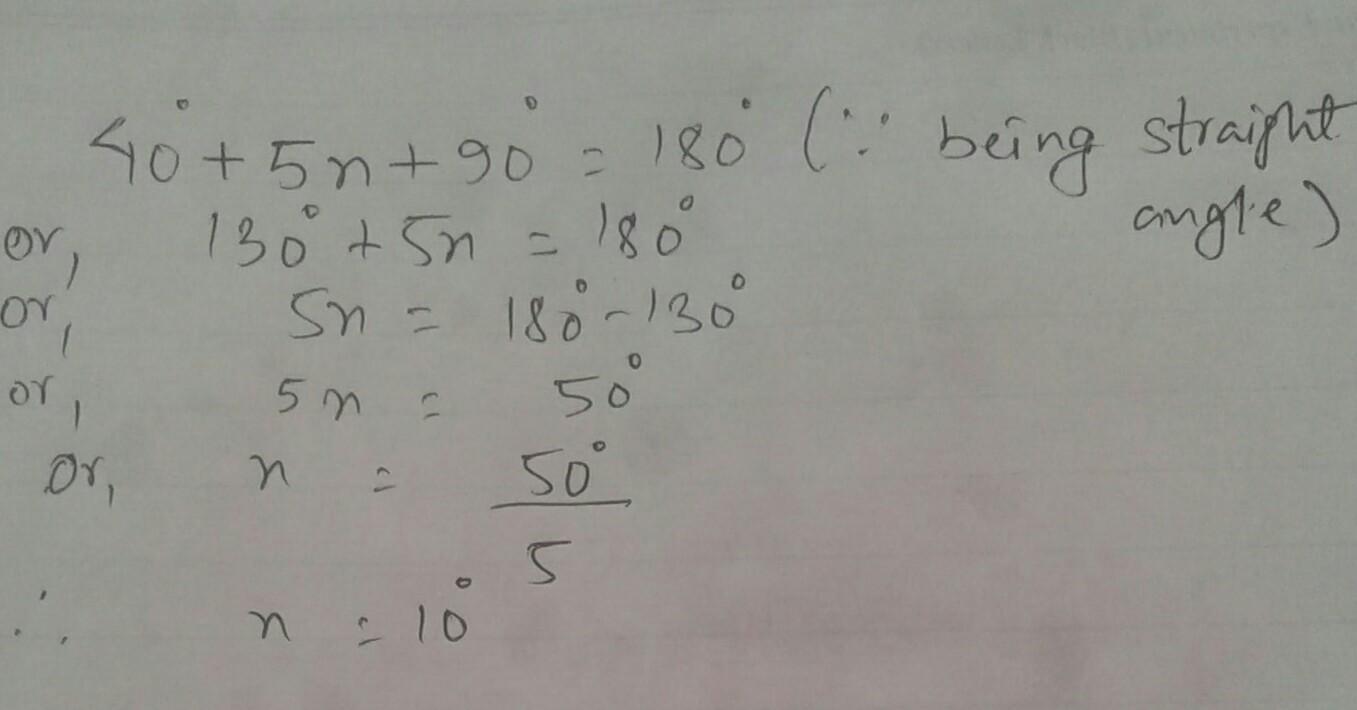 40° + 5n + 90° = 180° (∵ being straight angle)
or, 130° + 5n = 180°
or, 5n = 180° - 130°
or, 5n = 50°
or, n = 50°/5
∴ n = 10°